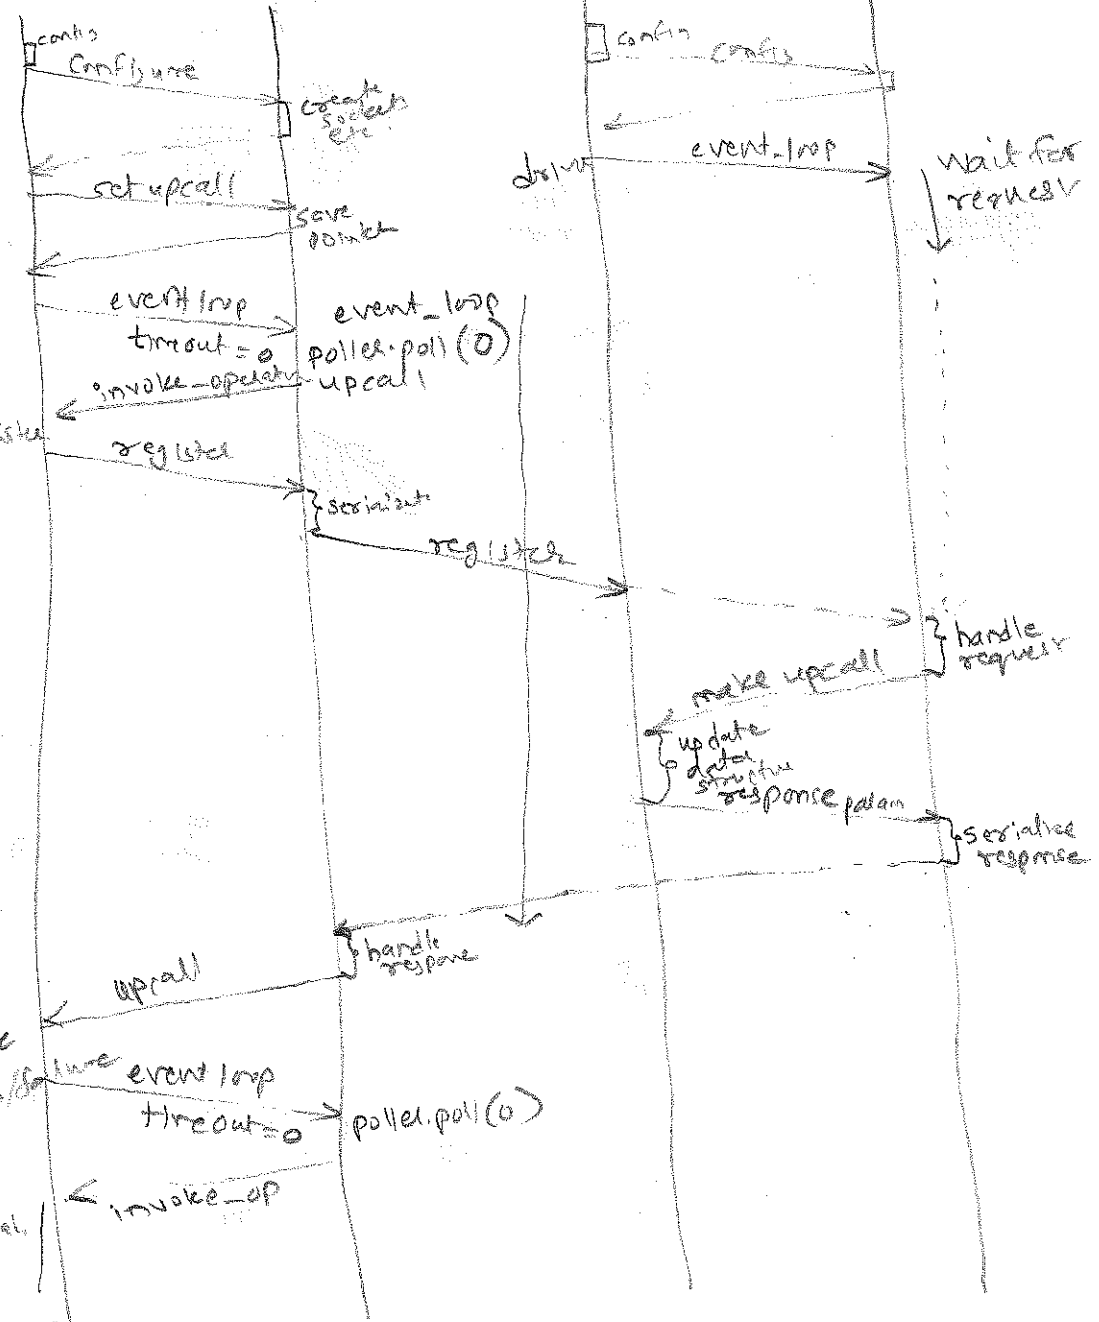 config
Configure
create
sockets
etc.
set upcall
save
pointer
event loop
timeout = 0
event_loop
poller.poll(0)
upcall
invoke_operation
register
serialize
register
handle
response
upcall
event loop
timeout = 0
poller.poll(0)
invoke_op
config
config
driver
event_loop
Wait for
request
handle
request
make upcall
update
data
structure
response param
serialize
response